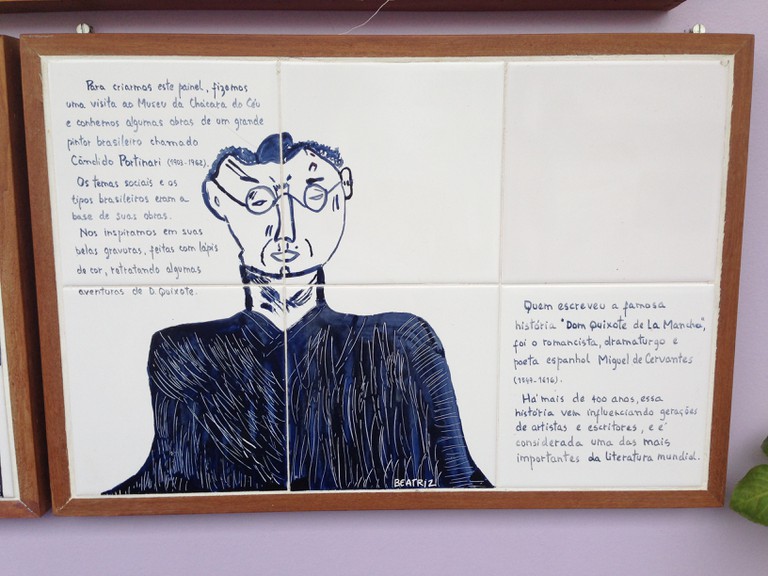 Para criarmos este painel, fizemos
uma visita ao Museu da Chácara do Céu
e conhemos algumas obras de um grande
pintor brasileiro chamado
Cândido Portinari (1903-1962).
Os temas sociais e os
tipos brasileiros eram a
base de suas obras.
Nos inspiramos em suas
belas gravuras, feitas com lápis
de cor, retratando algumas
aventuras de D. Quixote.
Quem escreveu a famosa
história "Dom Quixote de La Mancha",
foi o romancista, dramaturgo e
poeta espanhol Miguel de Cervantes
(1547-1616).
Há mais de 400 anos, essa
história vem influenciando gerações
de artistas e escritores, e é
considerada uma das mais
importantes da literatura mundial.
BEATRIZ